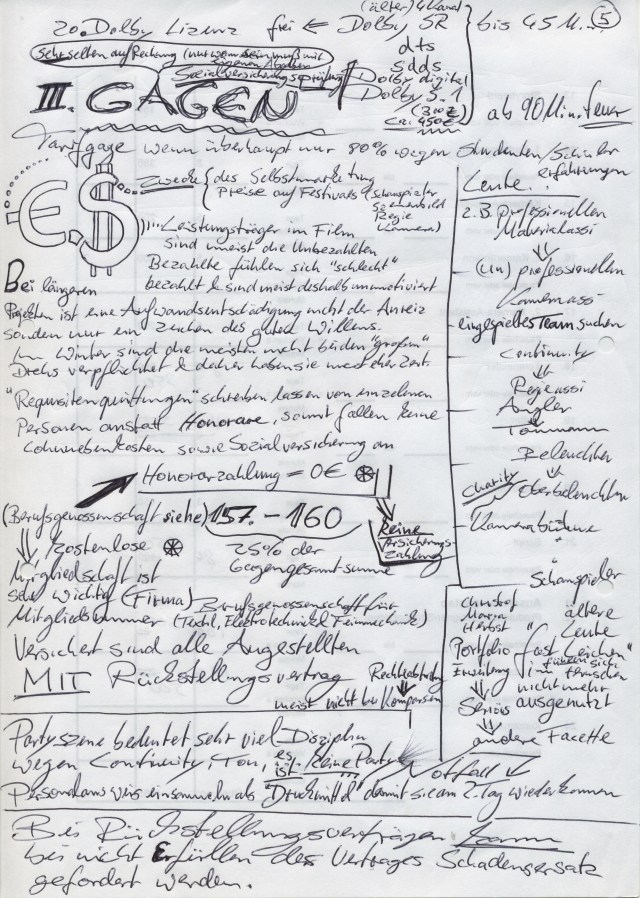 (älter) 4 Kanal
20. Dolby Lizenz frei ← Dolby SR bis 45 M... 5
dts
sdds
Sehr selten auf Rechnung (nur wenn sein muß mit
Sozialversicherungsprüfung)
Dolby digital
Dolby 5.1
(300€)
ca. 450€
III. GAGEN
ab 90 Min. teuer
Tarifgage wenn überhaupt nur 80% wegen Studenten/Schüler
erfahrungen
€.$
Zweck { des Selbstmarketing
Preise auf Festivals (Schauspieler
Szenenbild
Regie
Kamera)
Leistungsträger im Film
sind meist die Unbezahlten
Bezahlte fühlen sich "schlecht"
bezahlt & sind meist deshalb unmotiviert
Bei längeren
Projekten ist eine Aufwandsentschädigung nicht der Anreiz
sondern nur ein Zeichen des guten Willens.
Im Winter sind die meisten nicht bei den "großen"
Drehs verpflichtet & daher haben sie mehr Zeit.
"Requisitenquittungen" schreiben lassen von einzelnen
Personen anstatt Honorare, somit fallen keine
Lohnnebenkosten sowie Sozialversicherung an
Honorarzahlung = 0€
Keine
Versicherungs-
Zahlung
(Berufsgenossenschaft siehe) 157. - 160
25% der
Gagengesamtsumme
kostenlose
Mitgliedschaft ist
sehr wichtig (Firma)
Mitgliedsnummer
Berufsgenossenschaft für
(Textil, Elektrotechnik & Feinmechanik)
Versichert sind alle Angestellten
MIT Rückstellungsvertrag
Rechteabtretung
meist nicht bei Komparsen
Leute:
z.B. professionellen
Materialassi
(un)professionellen
Kameraassi
eingespieltes Team suchen
Continuity
Regieassi
Angler
Tonmann
Beleuchter
Charity
Oberbeleuchter
Kamerabühne
Schauspieler
Christof
Maria
Herbst
Portfolio
Erweiterung
Seriös
ältere
Leute
"fast Leichen"
fühlen sich
im
nicht mehr
ausgenutzt
andere Facette
Partyszene bedeutet sehr viel Disziplin
wegen Continuity, Ton, es ist keine Party
Notfall
Personalausweis einsammeln als "Druckmittel" damit sie am 2. Tag wiederkommen
Bei Rückstellungsverträgen kann
bei nicht Erfüllen des Vertrages Schadensersatz
gefordert werden.